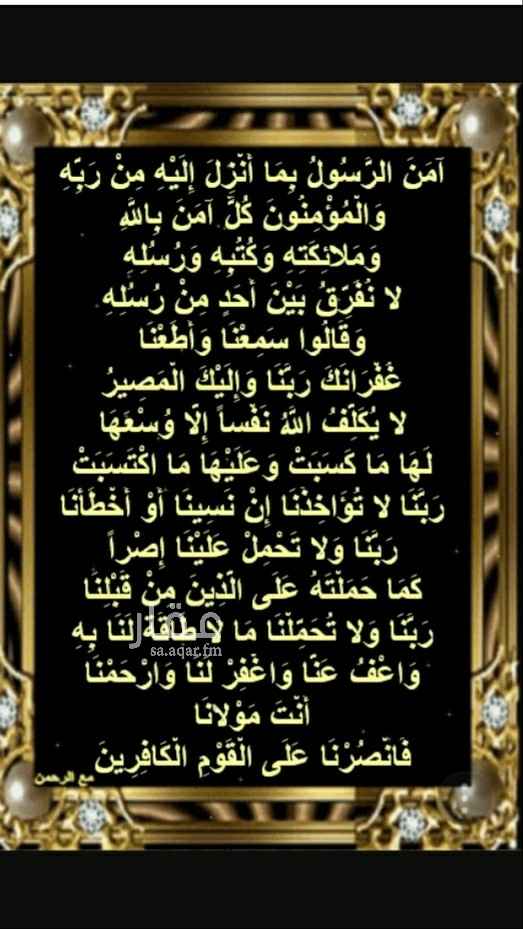 آمَنَ الرَّسُولُ بِمَا أُنْزِلَ إِلَيْهِ مِنْ رَبِّهِ
وَالْمُؤْمِنُونَ كُلٌّ آمَنَ بِاللَّهِ
وَمَلائِكَتِهِ وَكُتُبِهِ وَرُسُلِهِ
لا نُفَرِّقُ بَيْنَ أَحَدٍ مِنْ رُسُلِهِ
وَقَالُوا سَمِعْنَا وَأَطَعْنَا
غُفْرَانَكَ رَبَّنَا وَإِلَيْكَ الْمَصِيرُ
لا يُكَلِّفُ اللَّهُ نَفْساً إِلَّا وُسْعَهَا
لَهَا مَا كَسَبَتْ وَعَلَيْهَا مَا اكْتَسَبَتْ
رَبَّنَا لا تُؤَاخِذْنَا إِنْ نَسِينَا أَوْ أَخْطَأْنَا
رَبَّنَا وَلا تَحْمِلْ عَلَيْنَا إِصْراً
كَمَا حَمَلْتَهُ عَلَى الَّذِينَ مِنْ قَبْلِنَا
رَبَّنَا وَلا تُحَمِّلْنَا مَا لا طَاقَةَ لَنَا بِهِ
عقار
sa.aqar.fm
وَاعْفُ عَنَّا وَاغْفِرْ لَنَا وَارْحَمْنَا
أَنْتَ مَوْلانَا
فَانْصُرْنَا عَلَى الْقَوْمِ الْكَافِرِينَ
مع الرحمن